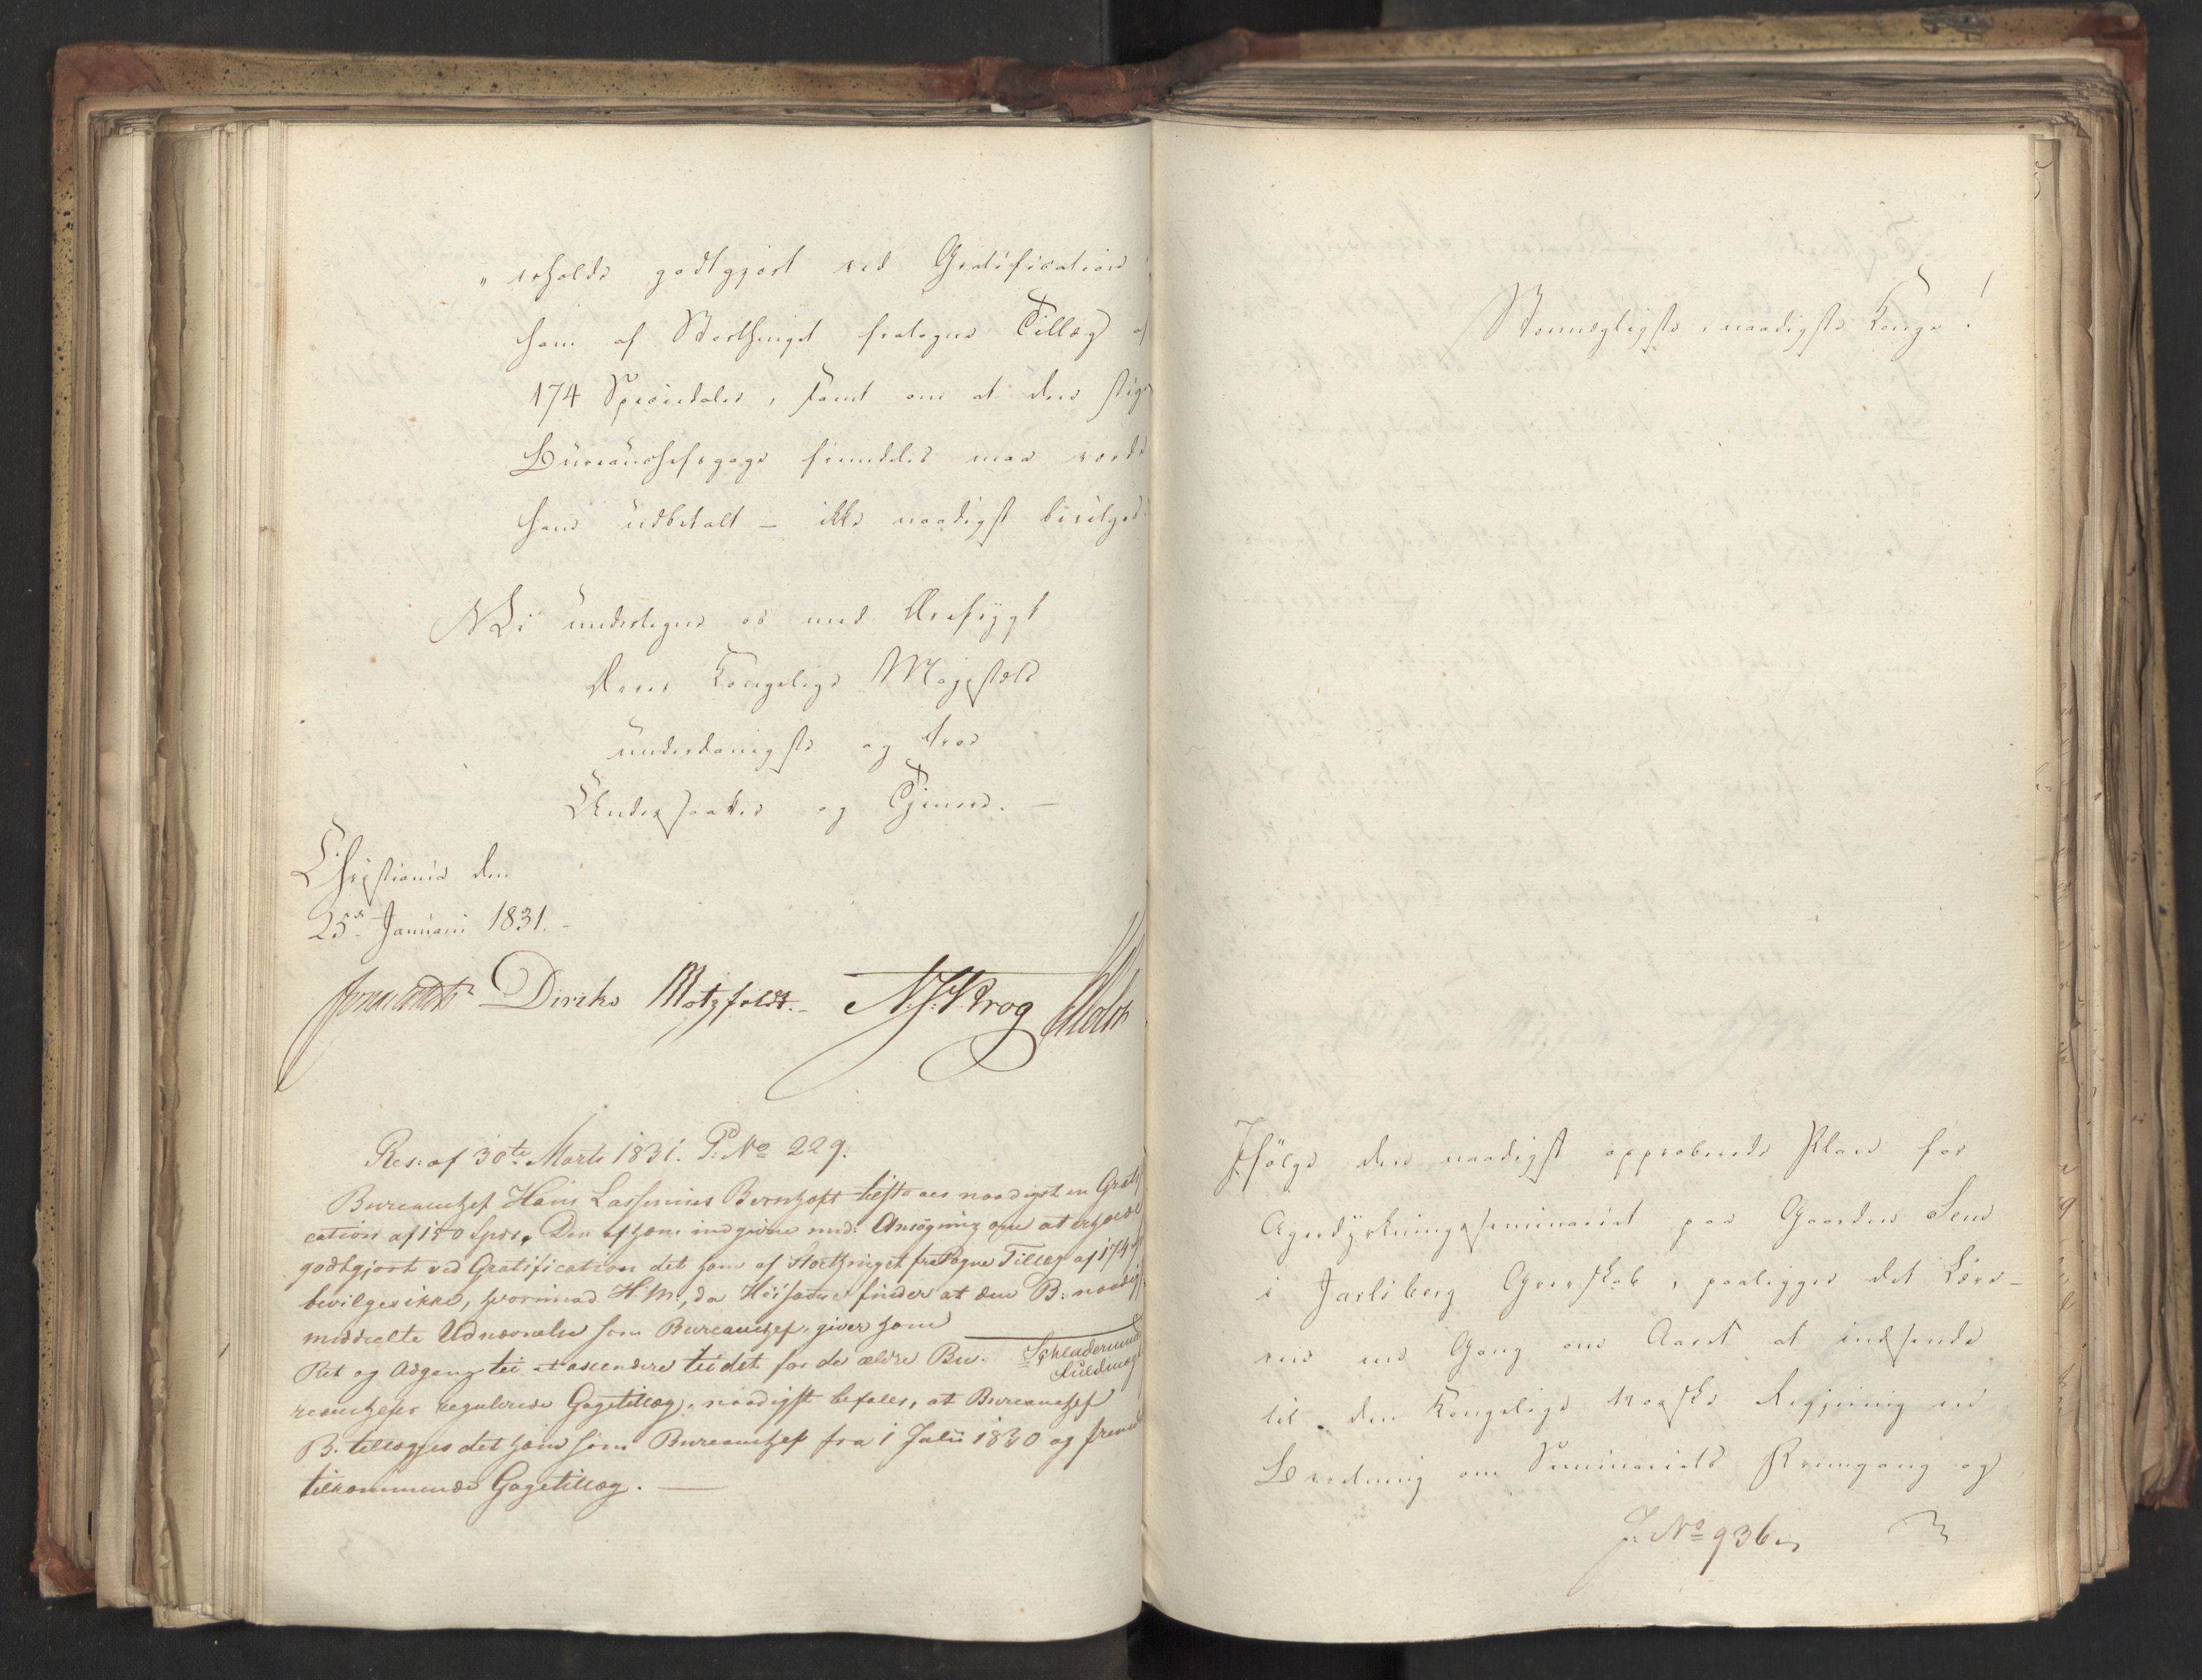 „ erholde godtgjort ved Gratification
ham af Storthinget fratagne Tillæg af
174 Speciedaler, samt om at den
Bureauchefsgage fremdeles maa vorde
ham udbetalt – ikke naadigst bevilges.
Vi undertegne os med Ærefrygt
Deres Kongelige Majestæts
underdanigste og troe
Undersaatter og Tjenere. –
Christiania den
25de Januari 1831. –
Diriks Motzfeldt. – N.J. Krog Holst
Res: af 30te Marts 1831. P. No 229.
Bureauchef Hans Lassenius Bernhoft tilstaaes naadigst en Gratifi
cation af 150 Spdr. Den af ham indgivne und: Ansøgning om at erholde
godtgjort ved Gratification det ham af Storthinget fratagne Tillæg af 174
bevilges ikke, hvorimod H. M., da Høisamme finder at den B: naadigst
meddeelte Udnævnelse som Bureauchef, giver ham
Ret og Adgang til at ascendere til det for de ældre Bu-
reauchefer regulerede Gagetillæg, naadigst befaler, at Bureauchef
B. tillægges det ham som Bureauchef fra 1 Julii 1830 og fremd
tilkommende Gagetillæg. —
Fuldmægt
Stormægtigste, naadigste Konge!
Ifølge den naadigst approberede Plan for
Agerdyrkningsseminariet paa Gaarden Sem
i Jarlsberg Grevskab, paaligger det Lære-
ren een Gang om Aaret at indsende
til den Kongelige norske Regjering en
Beretning om Seminariets Fremgang og
J. No 936